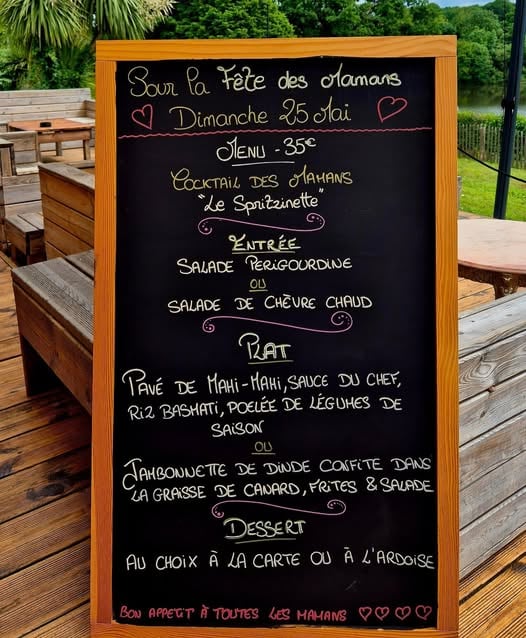 Pour la Fête des Mamans
Dimanche 25 Mai
MENU - 35€
COCKTAIL DES MAMANS
"Le Spritzinette"
ENTRÉE
SALADE PERIGOURDINE
OU
SALADE DE CHÈVRE CHAUD
PLAT
PAVÉ DE MAHI-MAHI, SAUCE DU CHEF,
RIZ BASMATI, POELÉE DE LÉGUMES DE
SAISON
OU
JAMBONNETTE DE DINDE CONFITE DANS
LA GRAISSE DE CANARD, FRITES & SALADE
DESSERT
AU CHOIX À LA CARTE OU À L'ARDOISE
BON APPETIT À TOUTES LES MAMANS